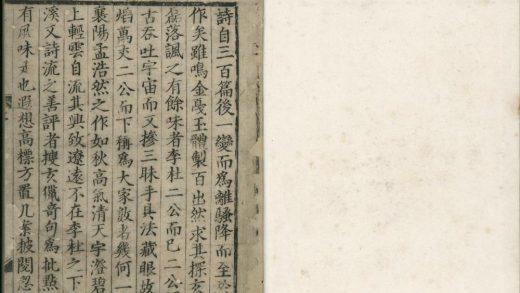 詩自三百篇後一變而爲離騷降而至
作矣雖鳴金戛玉體製百出然求其探玄
落諷之有餘味者李杜二公而已二公
古吞吐宇宙而又摻三昧手具法藏眼故
焰萬丈二公而下稱爲大家數者幾何一
襄陽孟浩然之作如秋高氣清天宇澄碧
上輕雲自流其興致遼遠不在李杜之下
溪又詩流之善評者摟玄獵奇句爲批點
有風味是也遐想高標方置几案披閱忽